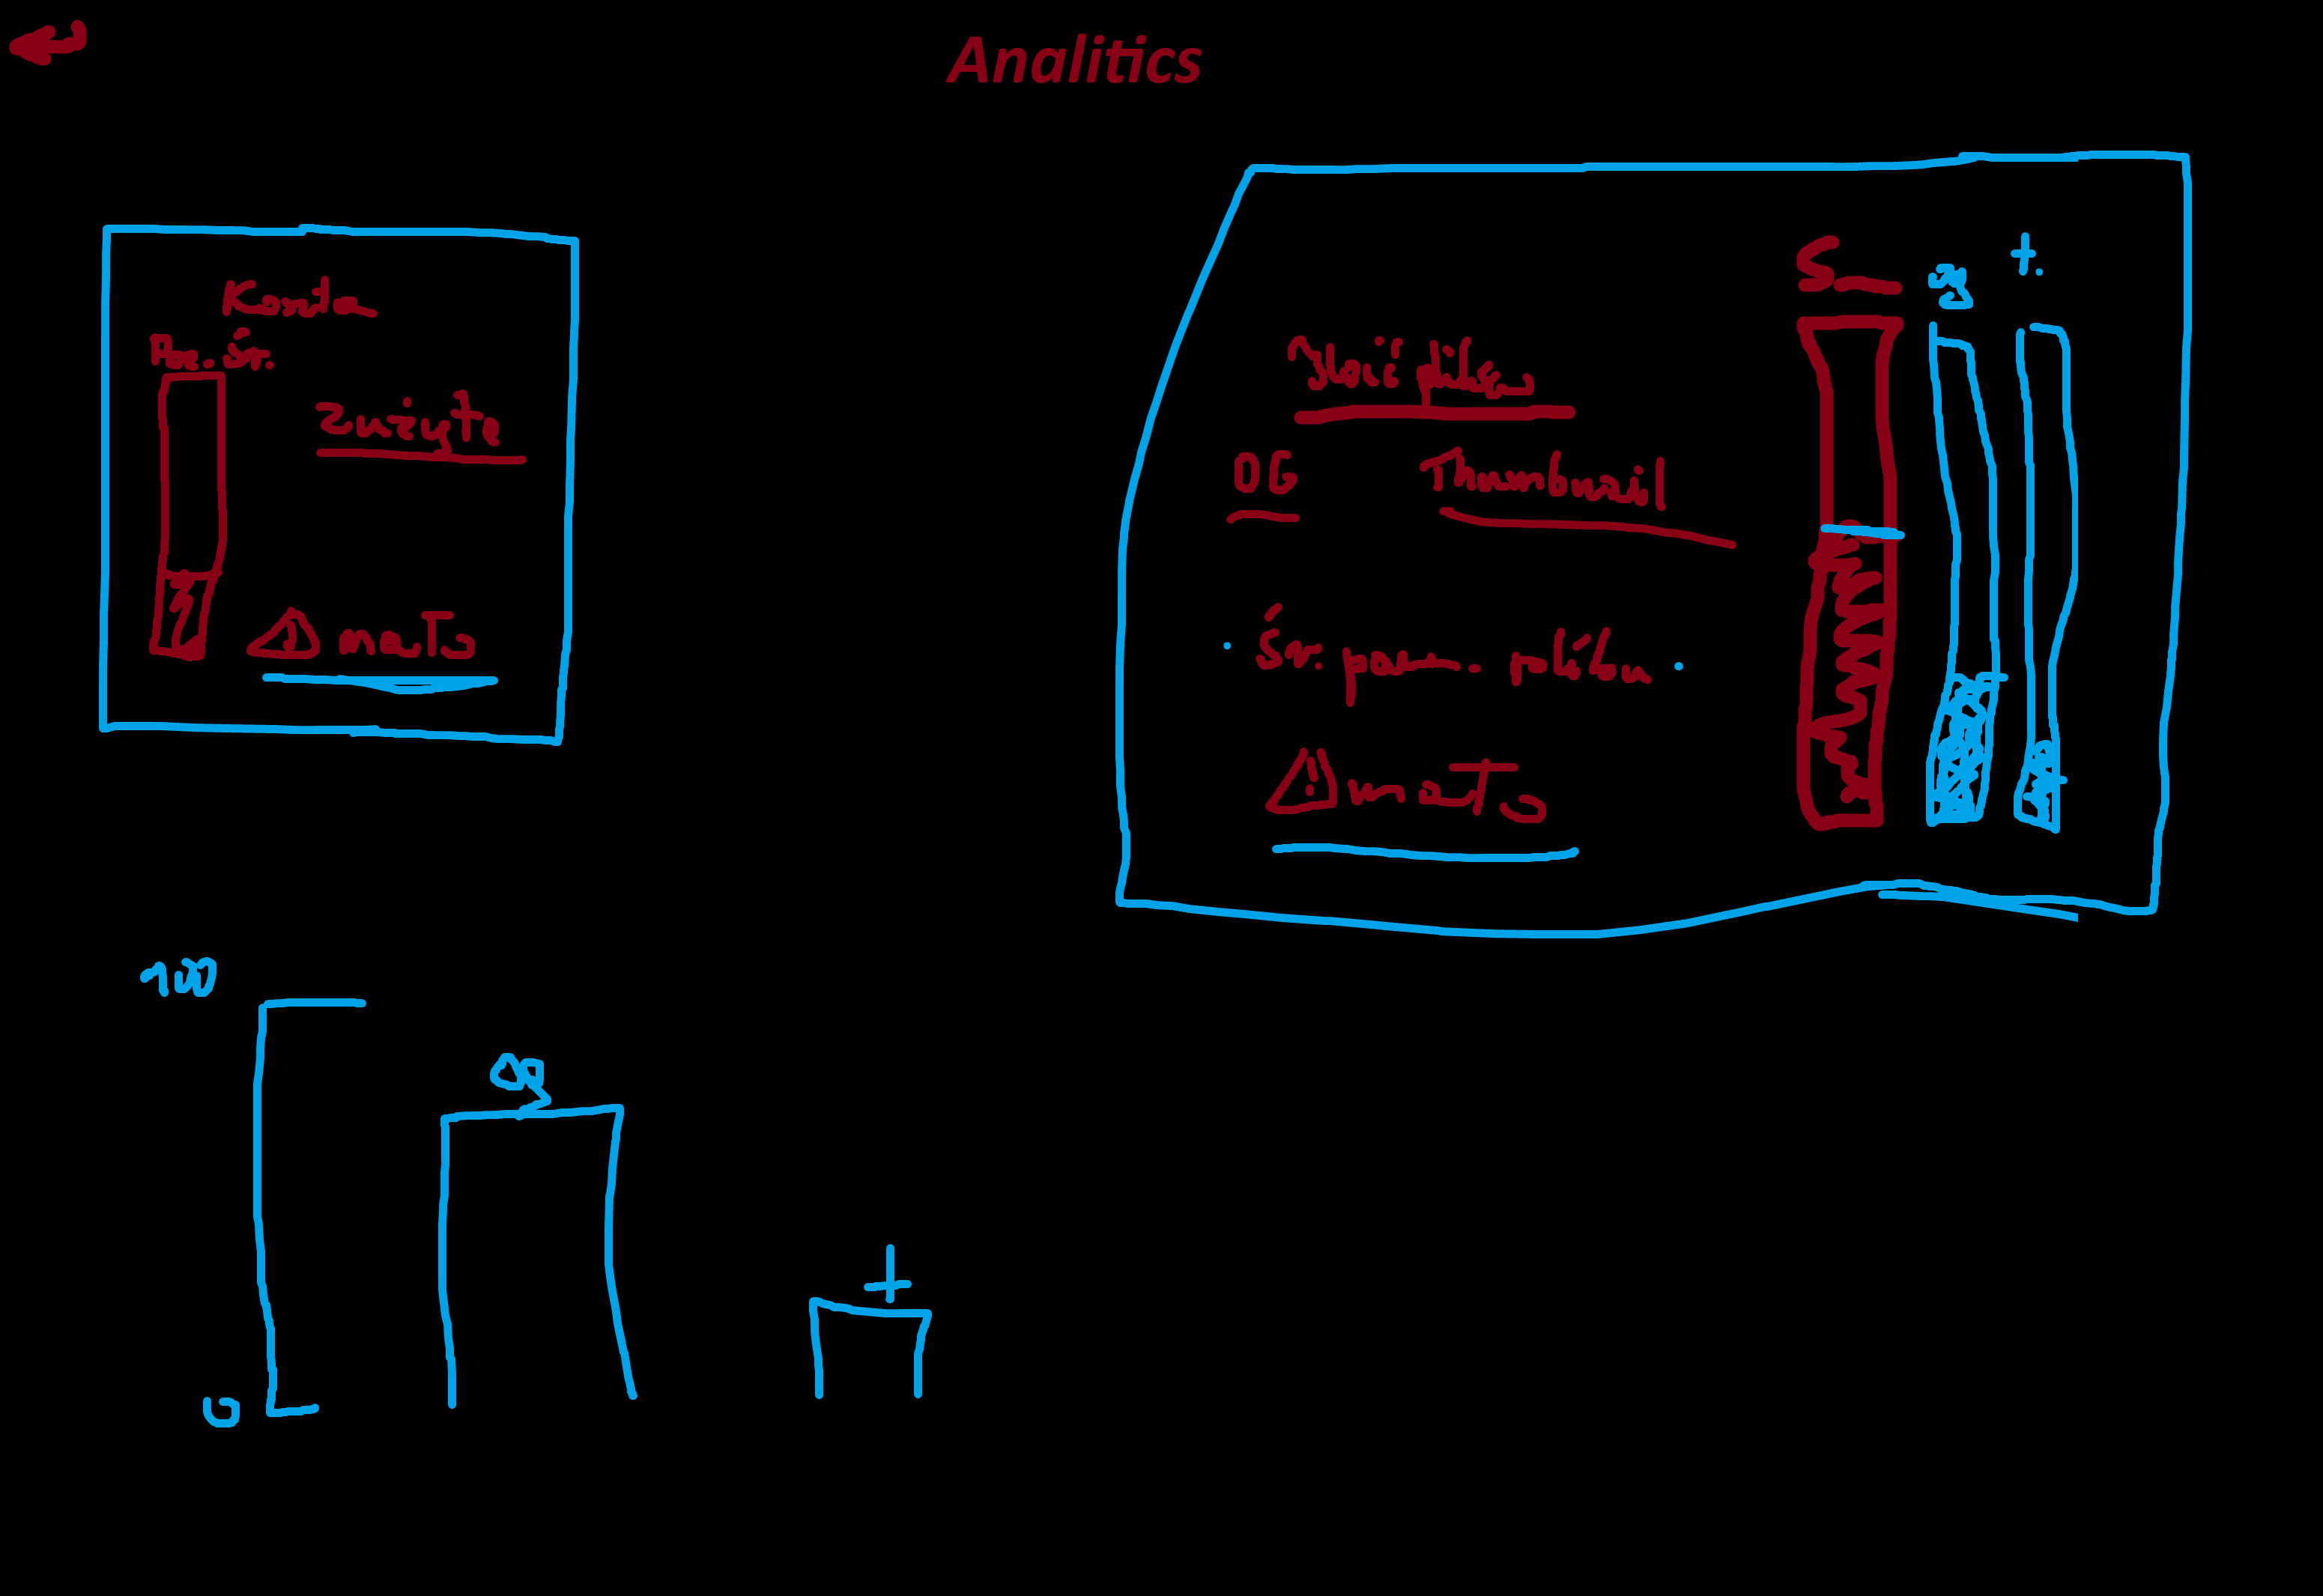 Analitics
Konta
Poj. śr.
zużyte
⚠ mało
S
t.
Ilość plików
OG Thumbnail
śr. poj. pliku
⚠ mało
100
og
t
0